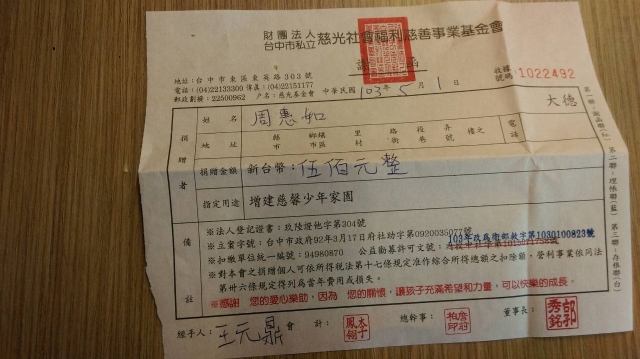 財團法人
台中市私立慈光社會福利慈善事業基金會
謝 函
地址:台中市東區東英路303號
電話:(04)22133300 傳真:(04)22151177
郵政劃撥:22500962 户名:慈光基金會
中華民國 103年 5月 1日
收據號碼 1022492
捐贈者
姓名 周惠如 大德
地址 縣市 鄉鎮市區 里村 路街 段巷 弄號 樓之 電話
捐贈金額 新台幣:伍佰元整
指定用途 增建慈馨少年家園
備註
※法人登記證書:玖陸證他字第304號
※立案字號:台中市政府92年3月17日府社助字第0920035077號
103年改為衛部救字第1030100823號
※扣繳單位統一編號:94980870 公益勸募許可文號:
※對本會之捐贈個人可依所得稅法第十七條規定准作綜合所得總額之扣除額。營利事業依同法
第卅六條規定得列為當年費用或損失。
※感謝 您的愛心樂助,因為 您的關懷,讓孩子充滿希望和力量,可以快樂的成長。
經手人:王元鼎 會計: 總幹事: 董事長:
第一聯:謝函聯(紅) 第二聯:理帳聯(藍) 第三聯:存根聯(白)